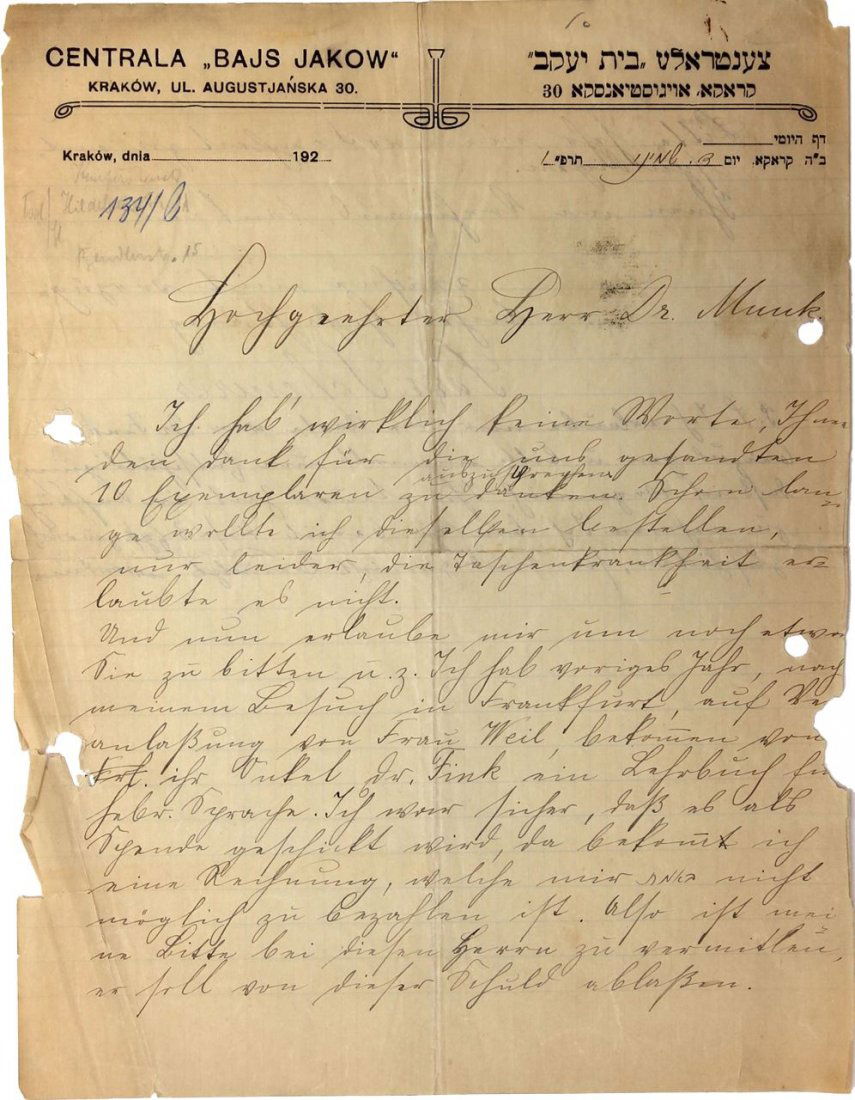 CENTRALA „BAJS JAKOW“
KRAKÓW, UL. AUGUSTJAŃSKA 30.
צענטראלט „בית יעקב"
קראקא, אויגוסטיאנסקא 30
דף היומי
Kraków, dnia 192
ב"ה קראקא, יום תרפ"
134/6
Hochgeehrter Herr Dr. Munk.
Ich hab' wirklich keine Worte, Ihnen
den dank für die uns gesandten
10 Exemplaren zu danken. auszusprechen Schon lan-
ge wollte ich dieselben bestellen,
nur leider, die Taschenkrankheit er-
laubte es nicht.
Und nun erlaube mir um noch etwas
Sie zu bitten u. z. Ich hab voriges Jahr, nach
meinem Besuch in Frankfurt, auf Ve
anlaßung von Frau Weil, bekommen von
ihr Onkel Dr. Fink ein Lehrbuch fü
hebr. Sprache. Ich war sicher, daß es als
Spende geschickt wird, da bekomm ich
eine Rechnung, welche mir nicht
möglich zu bezahlen ist. Also ist mei
ne Bitte bei diesen Herrn zu vermitlen,
er soll von dieser Schuld ablaßen.